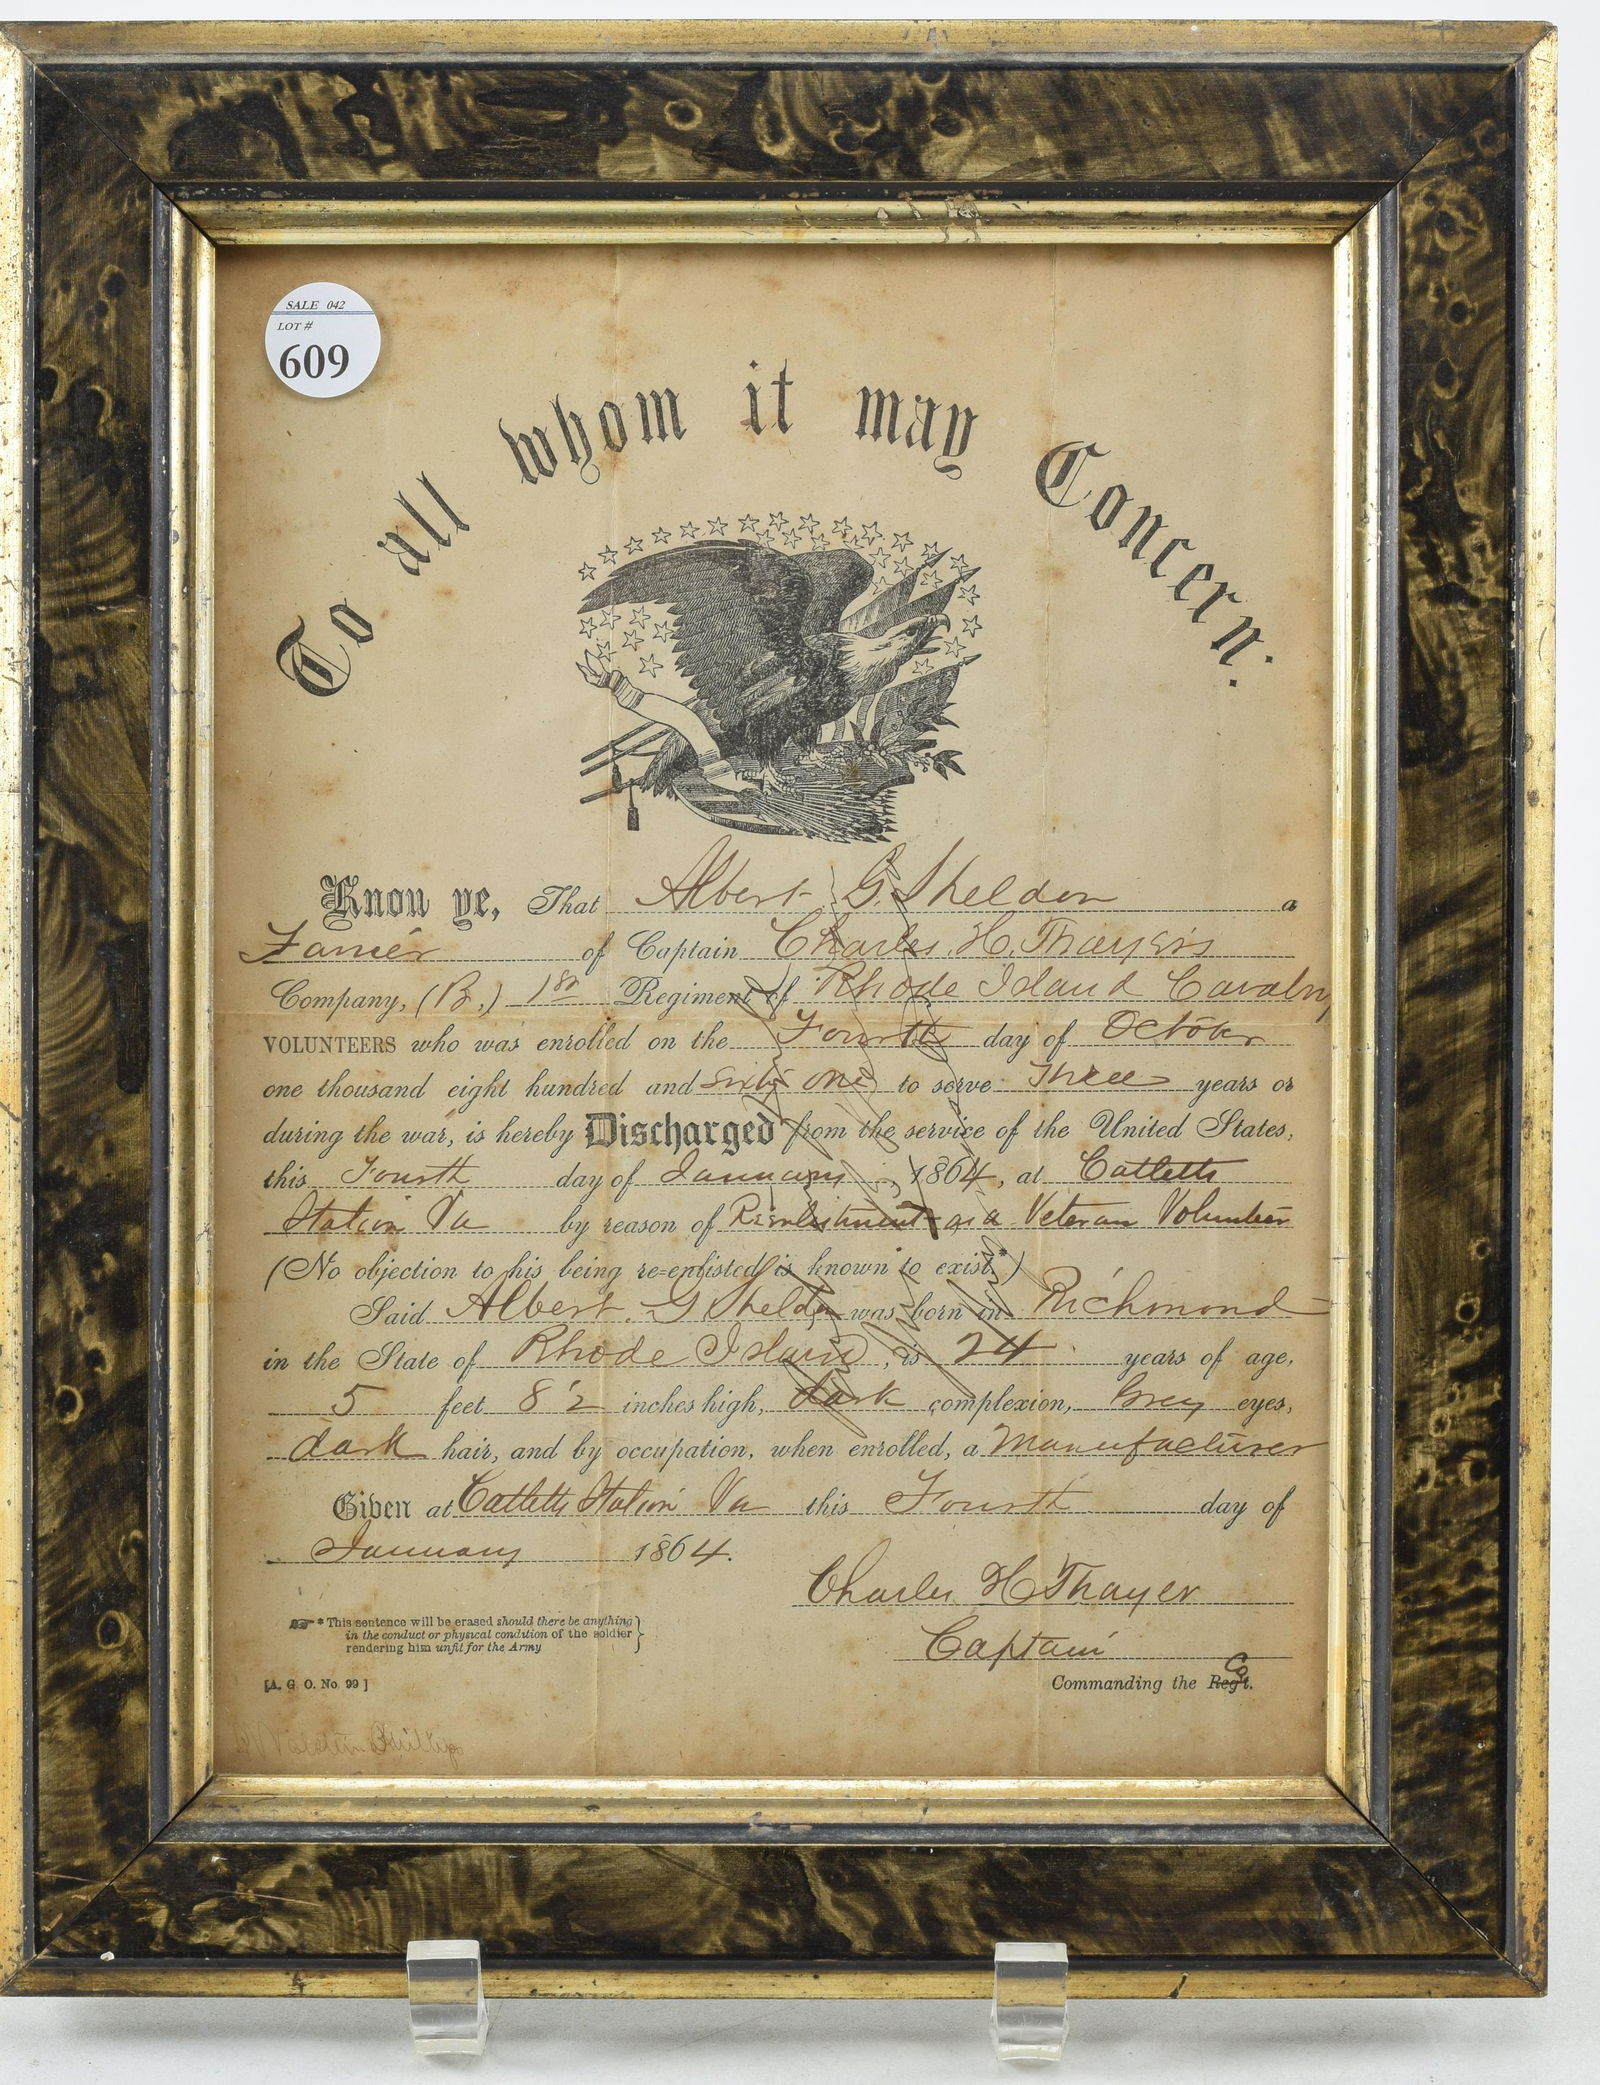 SALE 042
LOT #
609
To all whom it may Concern:
Know ye, That Albert G. Sheldon a
Farrier of Captain Charles H. Thayer's
Company, (B.) 1st Regiment of Rhode Island Cavalry
VOLUNTEERS who was enrolled on the Fourth day of October
one thousand eight hundred and sixty one to serve Three years or
during the war, is hereby Discharged from the service of the United States,
this Fourth day of January, 1864, at Catletts
Station Va by reason of Reenlistment as a Veteran Volunteer
(No objection to his being re=enlisted is known to exist.*)
Said Albert G Sheldon was born in Richmond
in the State of Rhode Island, is 24 years of age,
5 feet 8 1/2 inches high, dark complexion, Grey eyes,
dark hair, and by occupation, when enrolled, a Manufacturer
Given at Catletts Station Va this Fourth day of
January 1864.
Charles H Thayer
Captain
Commanding the Reg't. Co
* This sentence will be erased should there be anything
in the conduct or physical condition of the soldier
rendering him unfit for the Army
[A. G O. No 99]